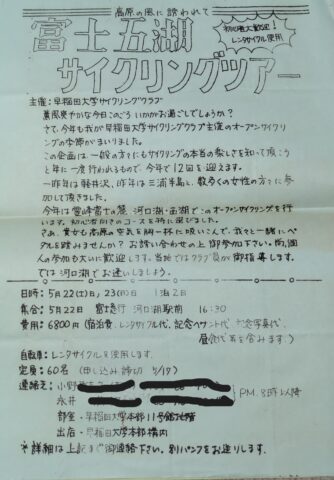 高原の風に誘われて
富士五湖
サイクリングツアー
初心者大歓迎!
レンタサイクル使用
主催:早稲田大学サイクリングクラブ
薫風爽やかな今日このごろいかがお過ごしでしょうか?
さて、今年も我が早稲田大学サイクリングクラブ主催のオープンサイクリ
ングの季節がまいりました。
この企画は一般の方々にもサイクリングの本当の楽しさを知って頂こう
と年に一度行われるもので、今年で12回を迎えます。
一昨年は軽井沢、昨年は三浦半島と、数多くの女性の方々に参
加して頂きました。
今年は霊峰富士の麓 河口湖・西湖でこのオープンサイクリングを行
います。初心者向きのコースを特に選びました。
さあ、貴女も高原の空気を胸一杯に吸いこんで、我々と一緒にペ
ダルを踏みませんか?お誘い合わせの上御参加下さい。尚、個
人の参加も大いに歓迎します。当地ではクラブ員が御指導します。
では河口湖でお逢いしましょう。
日時:5月22(土)日,23(日)日 1泊2日
集合:5月22日 富士急行 河口湖駅前 16:30
費用:6800円(宿泊費、レンタサイクル代、記念ペナント代、記念写真代、
昼食代等を含みます。)
自転車:レンタサイクルを使用します。
定員:60名(申し込み締切 5/17)
連絡先:小野
永井
P.M. 8時以降
部室・早稲田大学本部11号館地階
出店・早稲田大学本部構内
※詳細は上記まで御連絡下さい。別パンフをお送りします。